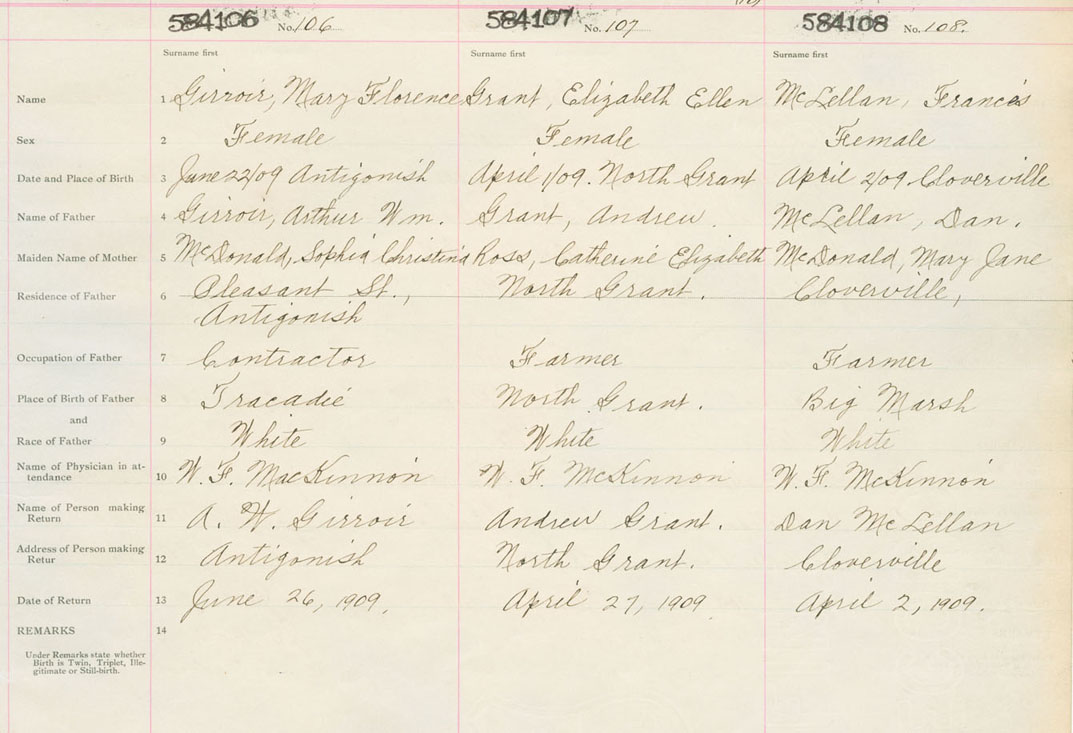 584106 No. 106 584107 No. 107 584108 No. 108.
Surname first Surname first Surname first
Name 1 Girroir, Mary Florence Grant, Elizabeth Ellen McLellan, Frances
Sex 2 Female Female Female
Date and Place of Birth 3 June 22/09 Antigonish April 1/09. North Grant April 2/09 Cloverville
Name of Father 4 Girroir, Arthur Wm. Grant, Andrew. McLellan, Dan.
Maiden Name of Mother 5 McDonald, Sophia Christina Ross, Catherine Elizabeth McDonald, Mary Jane
Residence of Father 6 Pleasant St., North Grant. Cloverville,
Antigonish
Occupation of Father 7 Contractor Farmer Farmer
Place of Birth of Father 8 Tracadie North Grant. Big Marsh
and
Race of Father 9 White White White
Name of Physician in at-
tendance 10 W. F. MacKinnon W. F. McKinnon W. F. McKinnon
Name of Person making
Return 11 A. W. Girroir Andrew Grant. Dan McLellan
Address of Person making
Retur 12 Antigonish North Grant. Cloverville
Date of Return 13 June 26, 1909. April 27, 1909 April 2, 1909.
REMARKS 14
Under Remarks state whether
Birth is Twin, Triplet, Ille-
gitimate or Still-birth.